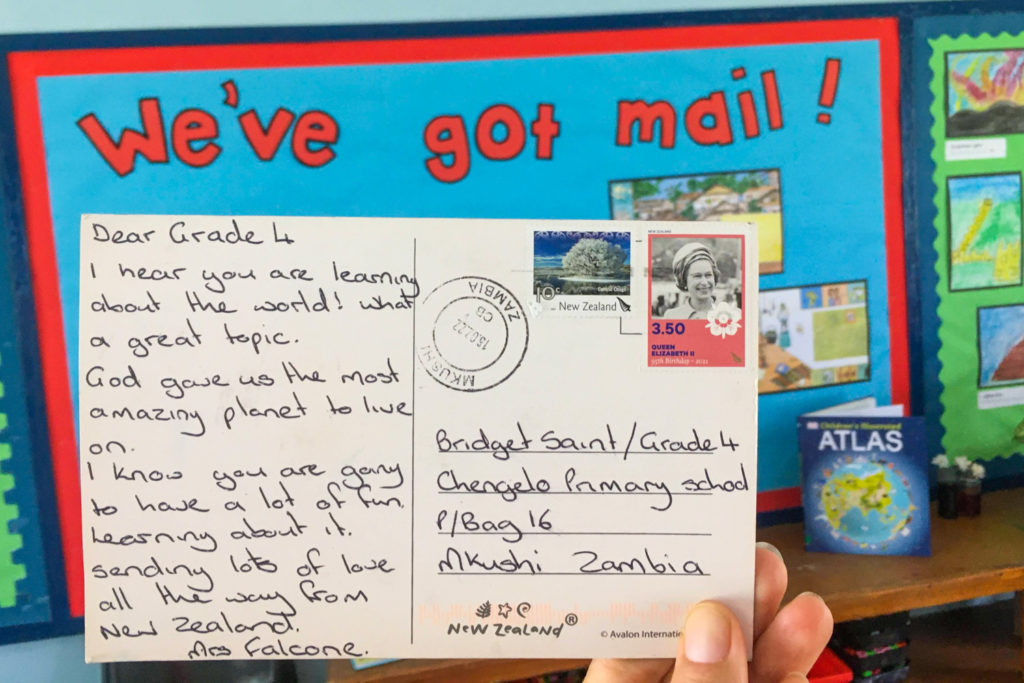 We've got mail!
Dear Grade 4
I hear you are learning
about the world! what
a great topic.
God gave us the most
amazing planet to live
on.
I know you are going
to have a lot of fun
Learning about it.
sending lots of love
all the way from
New Zealand.
Mrs Falcone.
MKUSHI
15.02.22
CB
ZAMBIA
10c
New Zealand
NEW ZEALAND
3.50
QUEEN
ELIZABETH II
95th Birthday – 2021
Bridget Saint/Grade 4
Chengelo Primary school
P/Bag 16
Mkushi Zambia
NEW ZEALAND®
© Avalon Internatio
Children's Illustrated
ATLAS